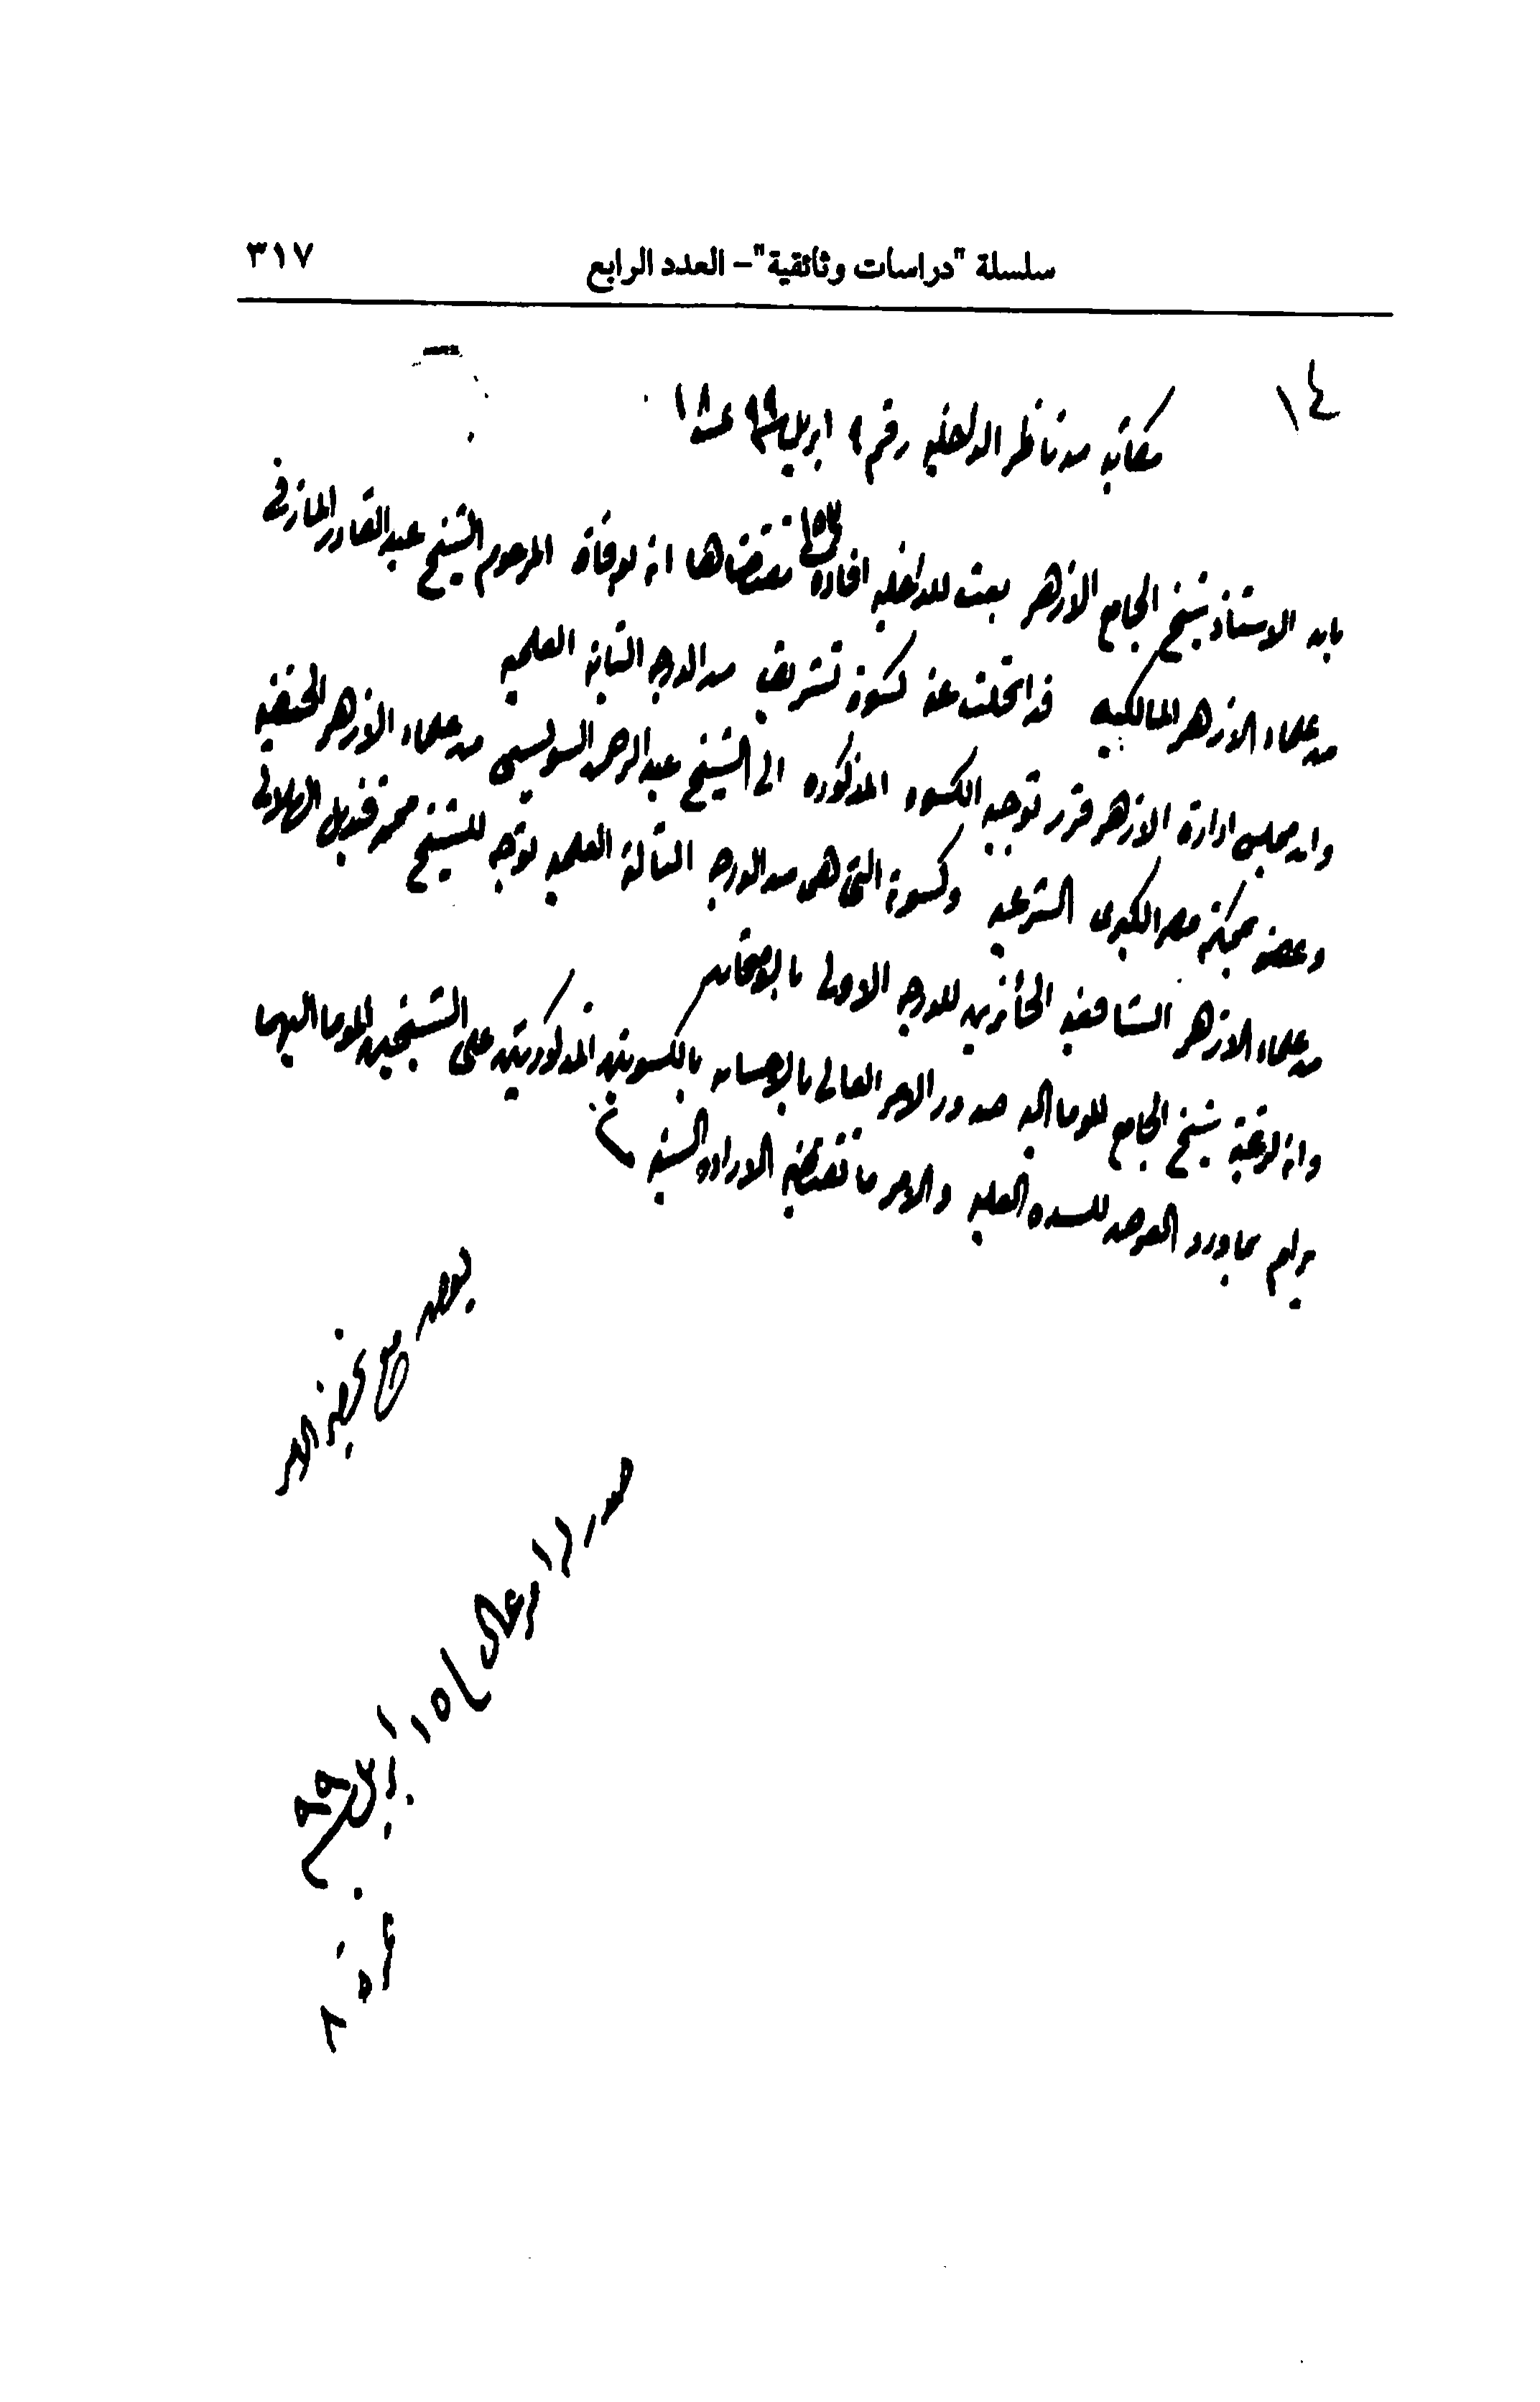 سلسلة "دراسات وثائقية"– العدد الرابع
٣١٧
١٤
مكاتبه من ناظر الداخليه رقم ٩ ابريل ٩٩ ١٨
بان الاستاذ شيخ الجامع الازهر بعث للداخليه افادة مقتضاها انه لوفاة المرحوم الشيخ عبد القادر المازنى
من علماء الازهر المالكيه قد انحلت عنه كسوة تشريف من الدرجه الثانيه العلميه
وان مجلس ادارة الازهر قرر توجيه الكسوه المذكوره الى الشيخ عبد الرحمن السويسى من علماء الازهر الحنفيه
وعضو محكمة مصر الكبرى الشرعيه وكسوته التى هى من الدرجه الثالثة العلميه توجه للشيخ محمد قنديل الهلالى
من علماء الازهر الشافعيه الحائزين للدرجه الاولى بالامتحان
وانه لرغبة شيخ الجامع الموما اليه صدور الامر العالى بالاحسان بالكسوتين المذكورتين على الشيخين الموما اليهما
يرام بما ورد العرض للسده العليه والامر ما تقتضيه الاراده السنيه
يعرض
صدر امر عالى
١٥